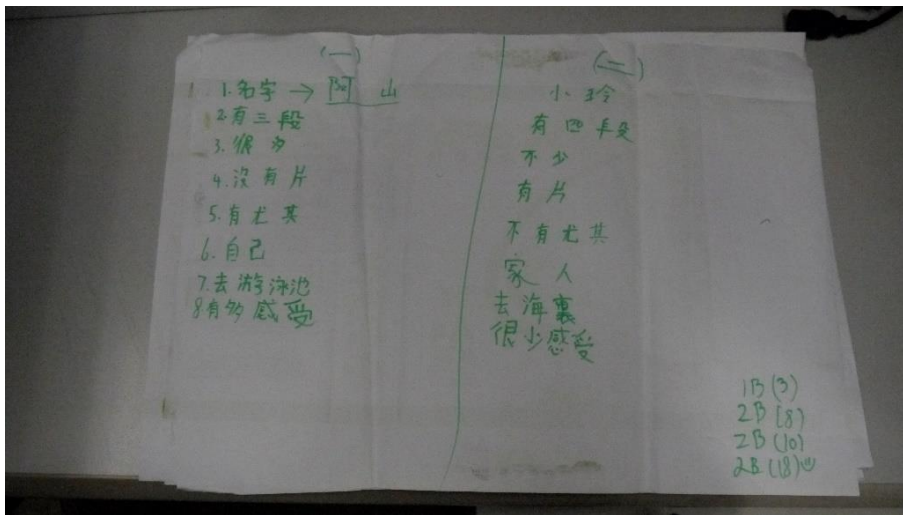 (一)
1.名字→阿山
2.有三段
3.很多
4.沒有片
5.有尤其
6.自己
7.去游泳池
8.有多感受
(二)
小玲
有四段
不少
有片
不有尤其
家人
去海裏
很少感受
1B(3)
2B(8)
2B(10)
2B(18)